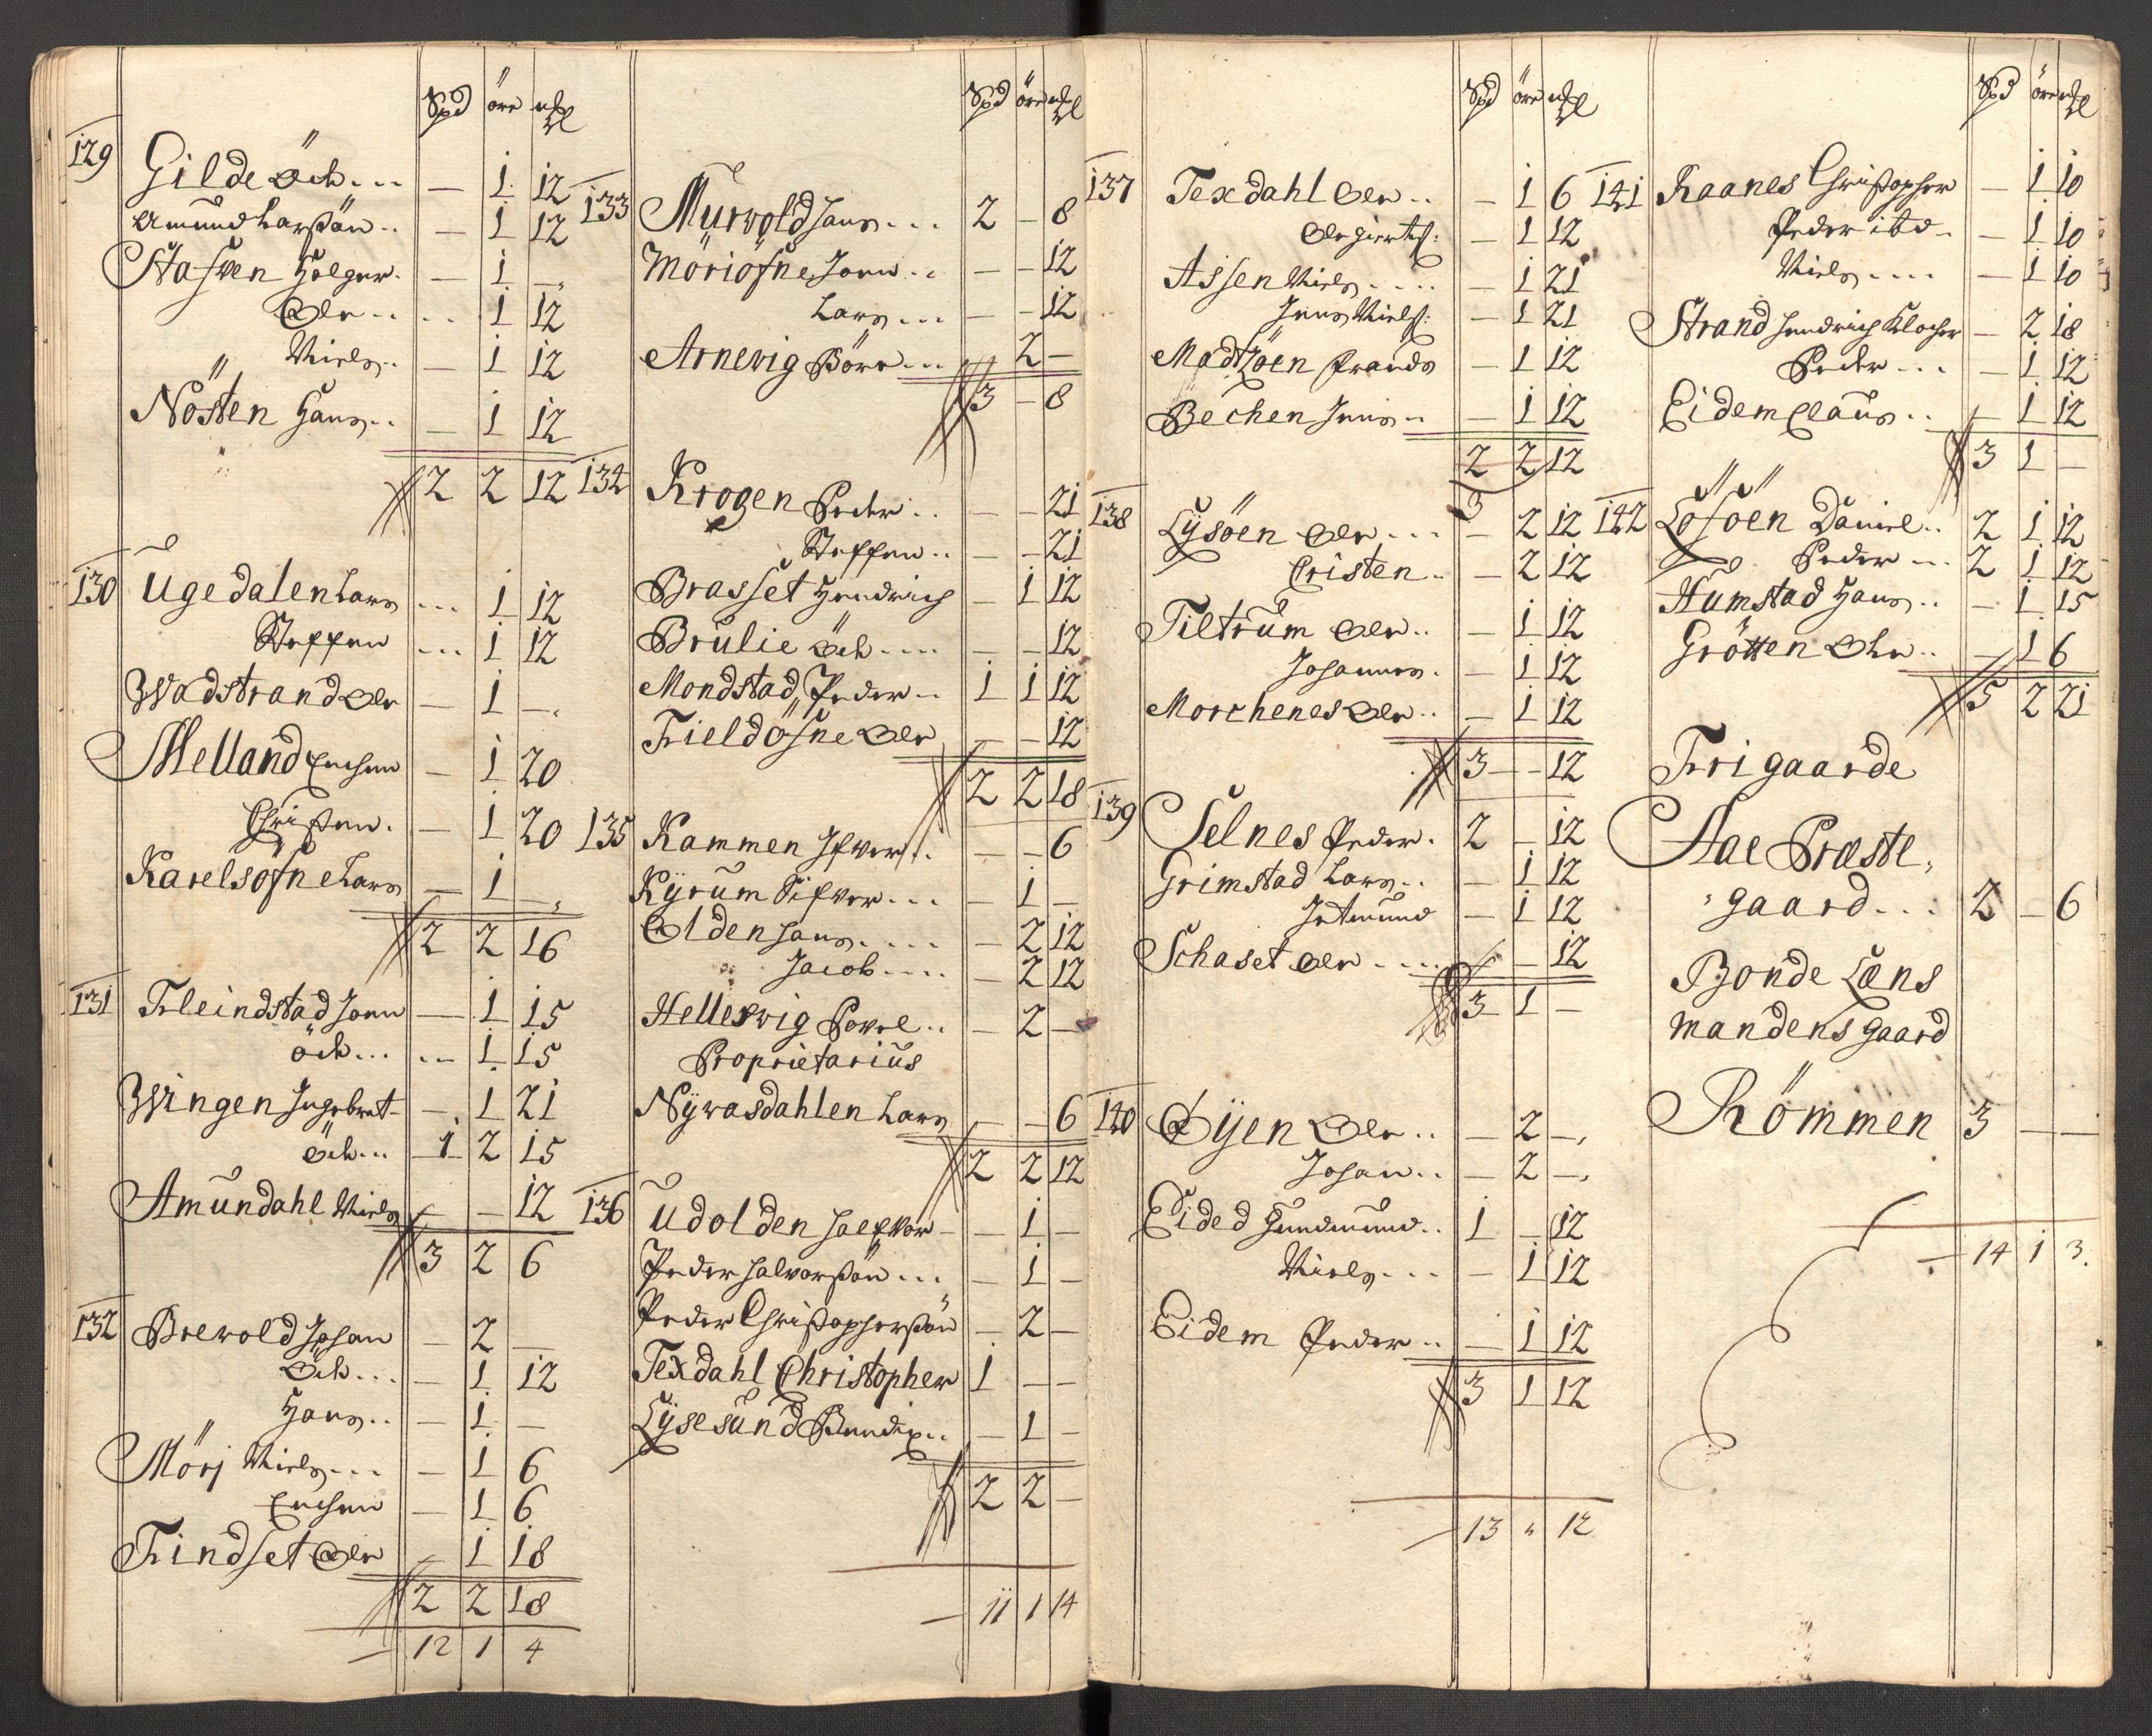 Spd öre mkl
129 Gilde Och... — 1 12
Amund Larssön.. — 1 12
Stafven Holger. — 1 —
Ole.. .. 1 12
Niels.. — 1 12
Nösten Hans.. — 1 12
2 2 12
130 Ugedalen Lars ... 1 12
Steffen ... 1 12
Wadstrand Ole — 1 —
Melland Enchen — 1 20
Christen. — 1 20
Karelsöfne Lars — 1 —
2 2 16
131 Fleindstad Jonn — 1 15
Och... .. 1 15
Wingen Ingebret — 1 21
Och... 1 2 15
Amundahl Niels — — 12
3 2 6
132 Brewold Johan — 2 —
Och... — 1 12
Hans.. — 1 —
Mörj Niels... — 1 6
Enchen — 1 6
Findset Ole — 1 18
2 2 18
— 12 1 4
Spd öre mkl
133 Murvold Hans... 2 — 8
Möriöfne Jonn.. — — 12
Lars... — — 12
Arnevig Börre... 2 —
3 — 8
134 Krogen Peder.. — — 21
Steffen.. — — 21
Brasset Hendrich — 1 12
Brulie Och.... — — 12
Mondstad Peder.. 1 1 12
Fieldösne Ole — — 12
2 2 18
135 Kammen Ifver.. — — 6
Kyrum Sifver... — 1 —
Olden Hans..... — 2 12
Jacob.... — 2 12
Hellervig Povel.. — 2 —
Proprietarius
Nyvasdahlen Lars — — 6
2 2 12
136 Udolden Halfvor — — 1 —
Peder Halvorssön... — 1 —
Peder Christophersön — 2 —
Texdahl Christopher 1 — —
Lysesund Bendix.. — 1 —
2 2 —
— 11 1 14
Spd öre mkl
137 Texdahl Ole.. — 1 6
Ole Giertss: — 1 12
Assen Niels.... — 1 21
Jens Nielss: — 1 21
Madtzöen Frands — 1 12
Bechen Jens.. — 1 12
2 2 12
3
138 Lysöen Ole... — 2 12
Cristen.. — 2 12
Tiltrum Ole.. — 1 12
Johannes. — 1 12
Morchenes Ole.. — 1 12
3 — 12
139 Selnes Peder. 2 — 12
Grimstad Lars.. — 1 12
Jetmund — 1 12
Schaset Ole .... — 12
3 1 —
140 Öyen Ole.. — 2 —
Johan.. — 2 —
Eided Gundmund.. 1 — 12
Niels... — 1 12
Eidem Peder.. — 1 12
3 1 12
— 13 " 12
Spd öre mkl
141 Raanes Christopher — 1 10
Peder ibd. — 1 10
Niels.... — 1 10
Strand Hendrich Klocher — 2 18
Peder... — 1 12
Eidem Claus.. — 1 12
3 1 —
142 Löföen Daniel.. 2 1 12
Peder... 2 1 12
Humstad Hans.. — 1 15
Grötten Ole.. — 1 6
5 2 21
Frigaarde
Aae Præste,
gaard... 2 — 6
Bonde Læns
mandens gaard
Römmen 3 — —
— 14 1 3.